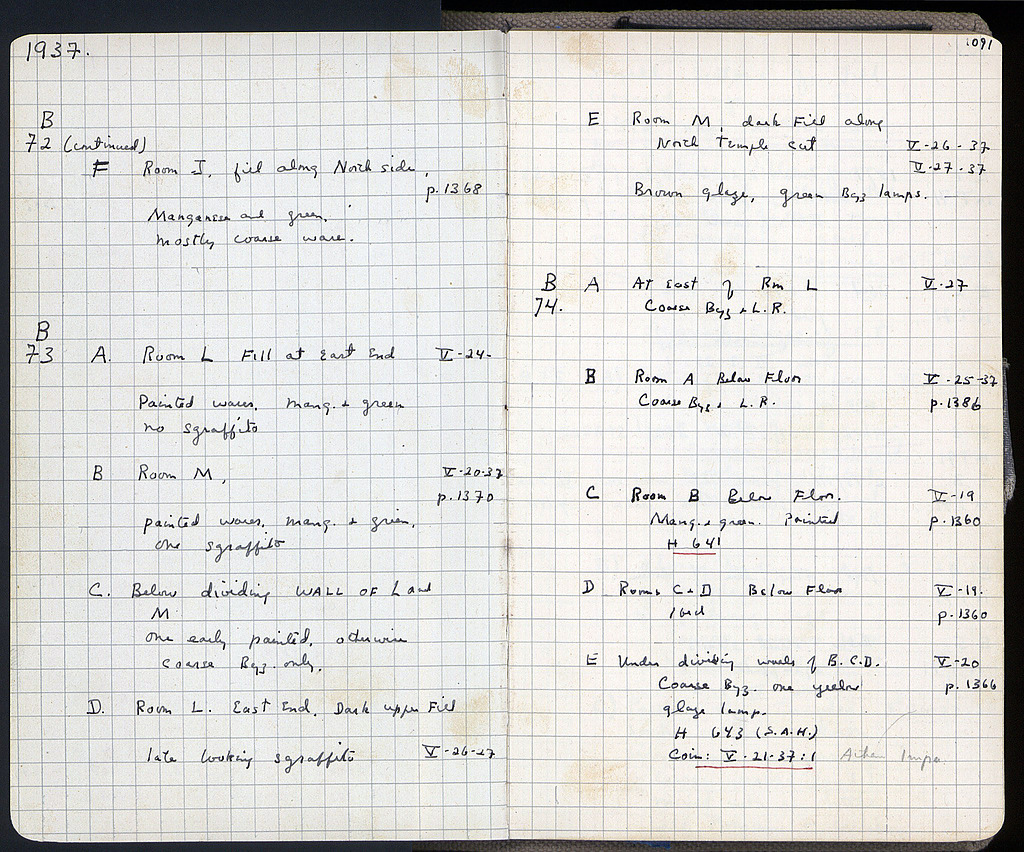 1937.
B
72 (continued)
F Room I, fill along North side,
p. 1368
Manganese and green.
mostly coarse ware.
B
73 A. Room L Fill at East End V-24-
Painted wares, mang. + green
no sgraffito
B Room M, V-20-37
p. 1370
painted wares, mang. + green,
one sgraffito
C. Below dividing WALL OF L and
M
one early painted, otherwise
coarse Byz. only.
D. Room L. East End. Dark upper Fill
late looking sgraffito V-26-27
1091
E Room M, dark Fill along
North Temple cut V-26-37
V-27-37
Brown glaze, green Byz lamps.
B A At East of Rm L V-27
74. Coarse Byz + L.R.
B Room A Below Floor V-25-37
Coarse Byz + L.R. p. 1386
C Room B Below Floor. V-19
Mang. + green. Painted p. 1360
H 641
D Rooms C+D Below Floor V-19.
Ibid p. 1360
E Under dividing walls of B.C.D. V-20
Coarse Byz. one yellow p. 1366
glaze lamp.
H 643 (S.A.H.)
Coin: V-21-37:1